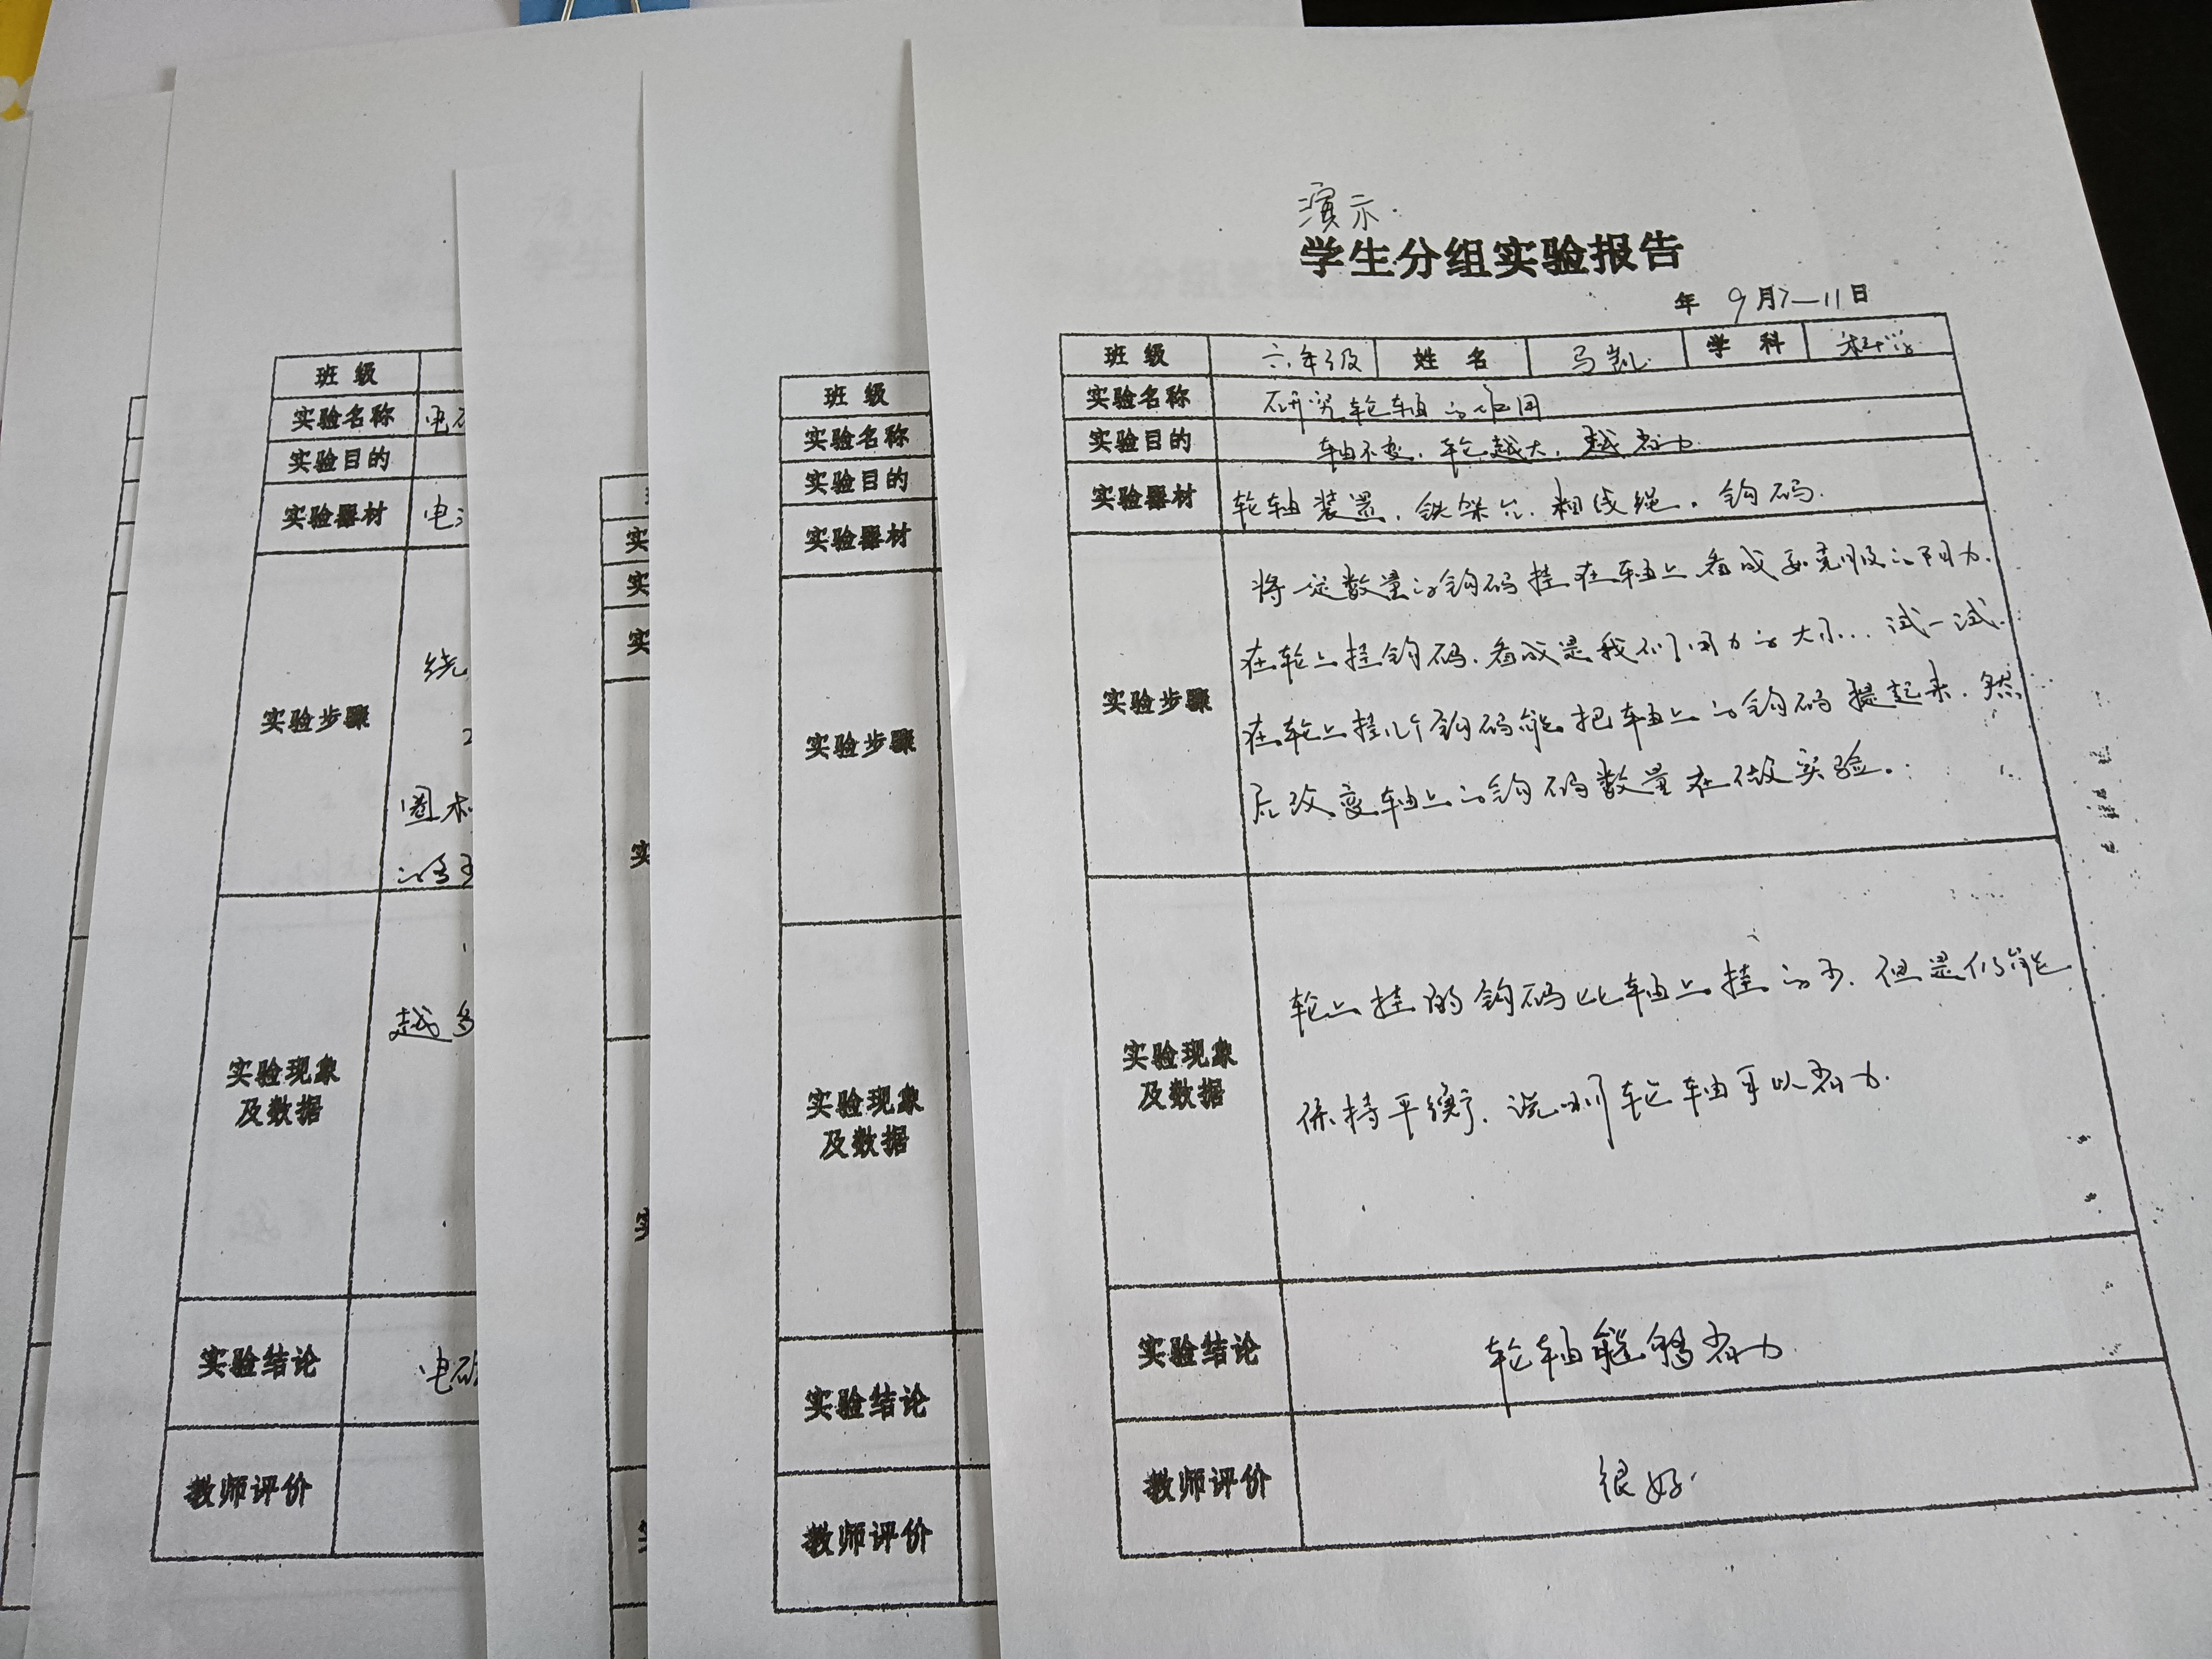 演示.
学生分组实验报告
年 9月7—11日
班 级 六年级 姓 名 马凯 学 科 科学
实验名称 研究轮轴的作用
实验目的 轴不变,轮越大,越省力
实验器材 轮轴装置.铁架台.粗线绳.钩码.
实验步骤
将一定数量的钩码挂在轴上看成要克服的阻力.
在轮上挂钩码.看成是我们用力的大小...试一试.
在轮上挂几个钩码能把轴上的钩码提起来.然
后改变轴上的钩码数量在做实验。
实验现象
及数据
轮上挂的钩码比轴上挂的少.但是仍能
保持平衡.说明轮轴可以省力.
实验结论 轮轴能够省力
教师评价 很好.
班 级
实验名称
实验目的
实验器材
实验步骤
实验现象
及数据
实验结论
教师评价
实
实
实
实
班 级
实验名称 电
实验目的
实验器材 电
实验步骤
绕
圈
的多
实验现象
及数据
越多
实验结论 电磁
教师评价